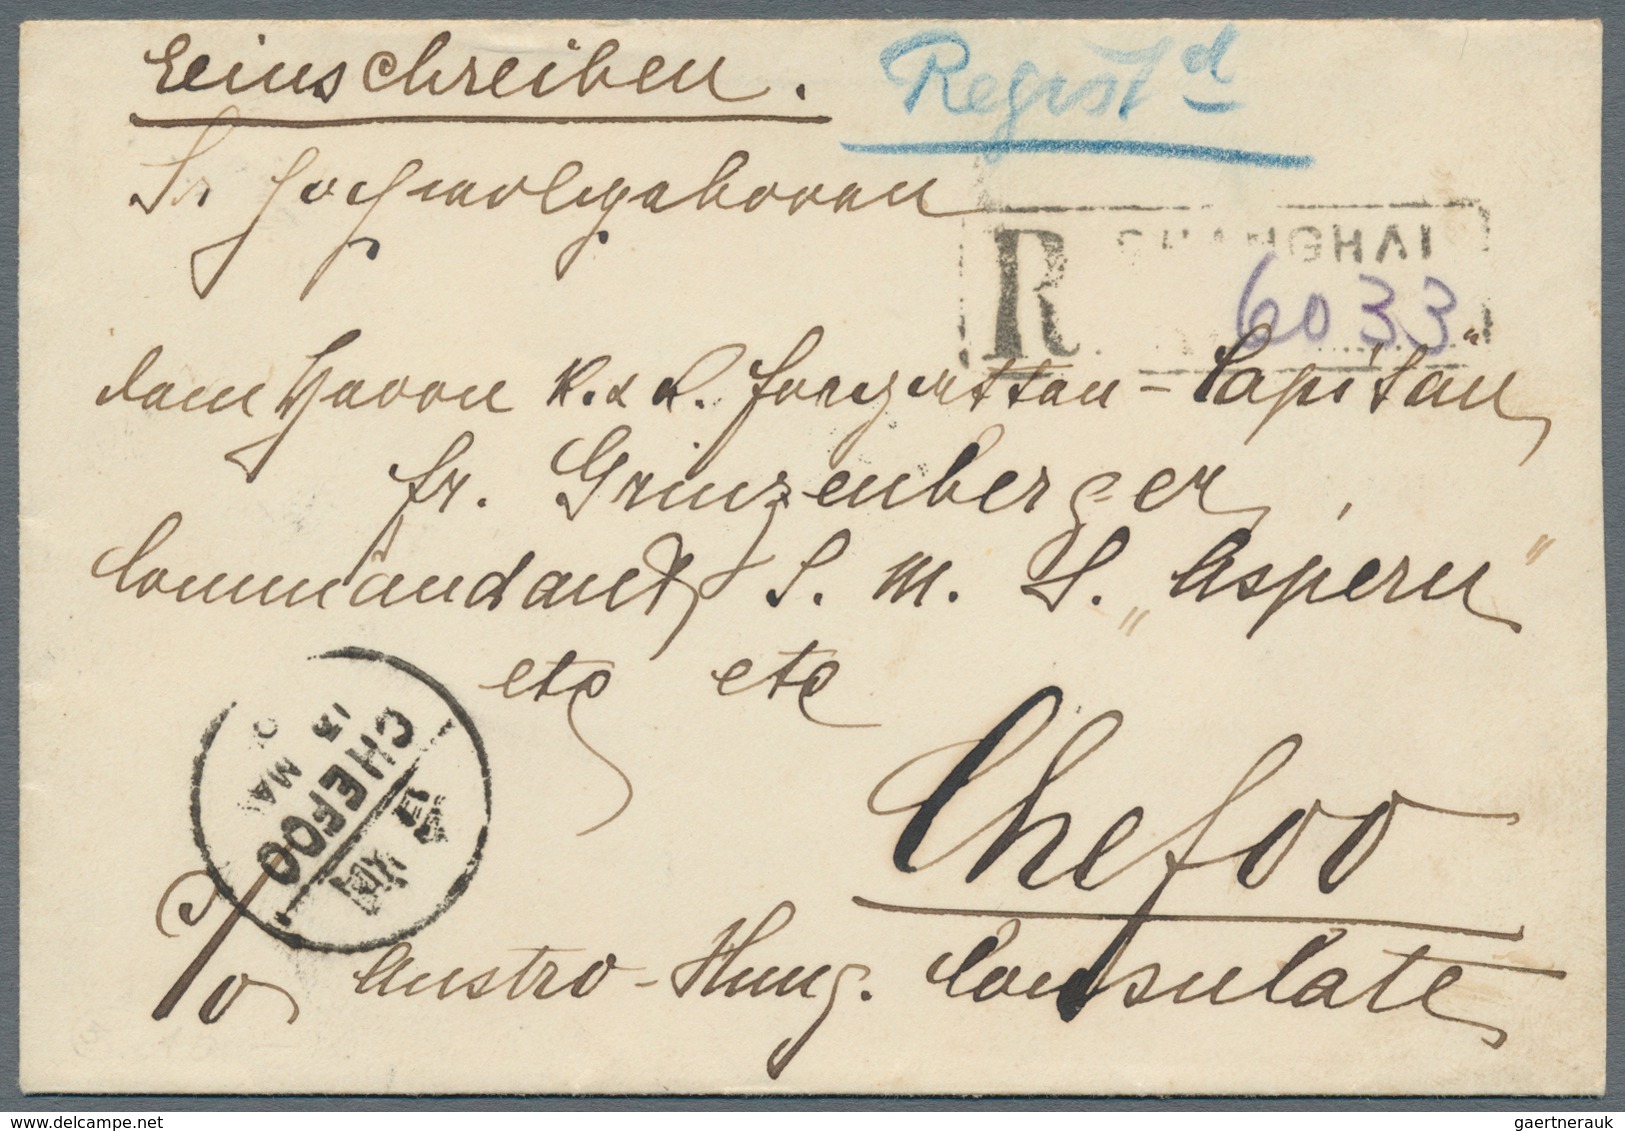 Einschreiben.
Regist d
Sr Hochwohlgeboren
R SHANGHAI
6033
dem Herrn k. & k. Fregatten-Capitän
Fr. Grinzenberger,
Commandant S. M. S. „Aspern"
etc etc
CHEFOO
13 MA
Chefoo
c/o Austro-Hung. Consulate
gaertnerauk